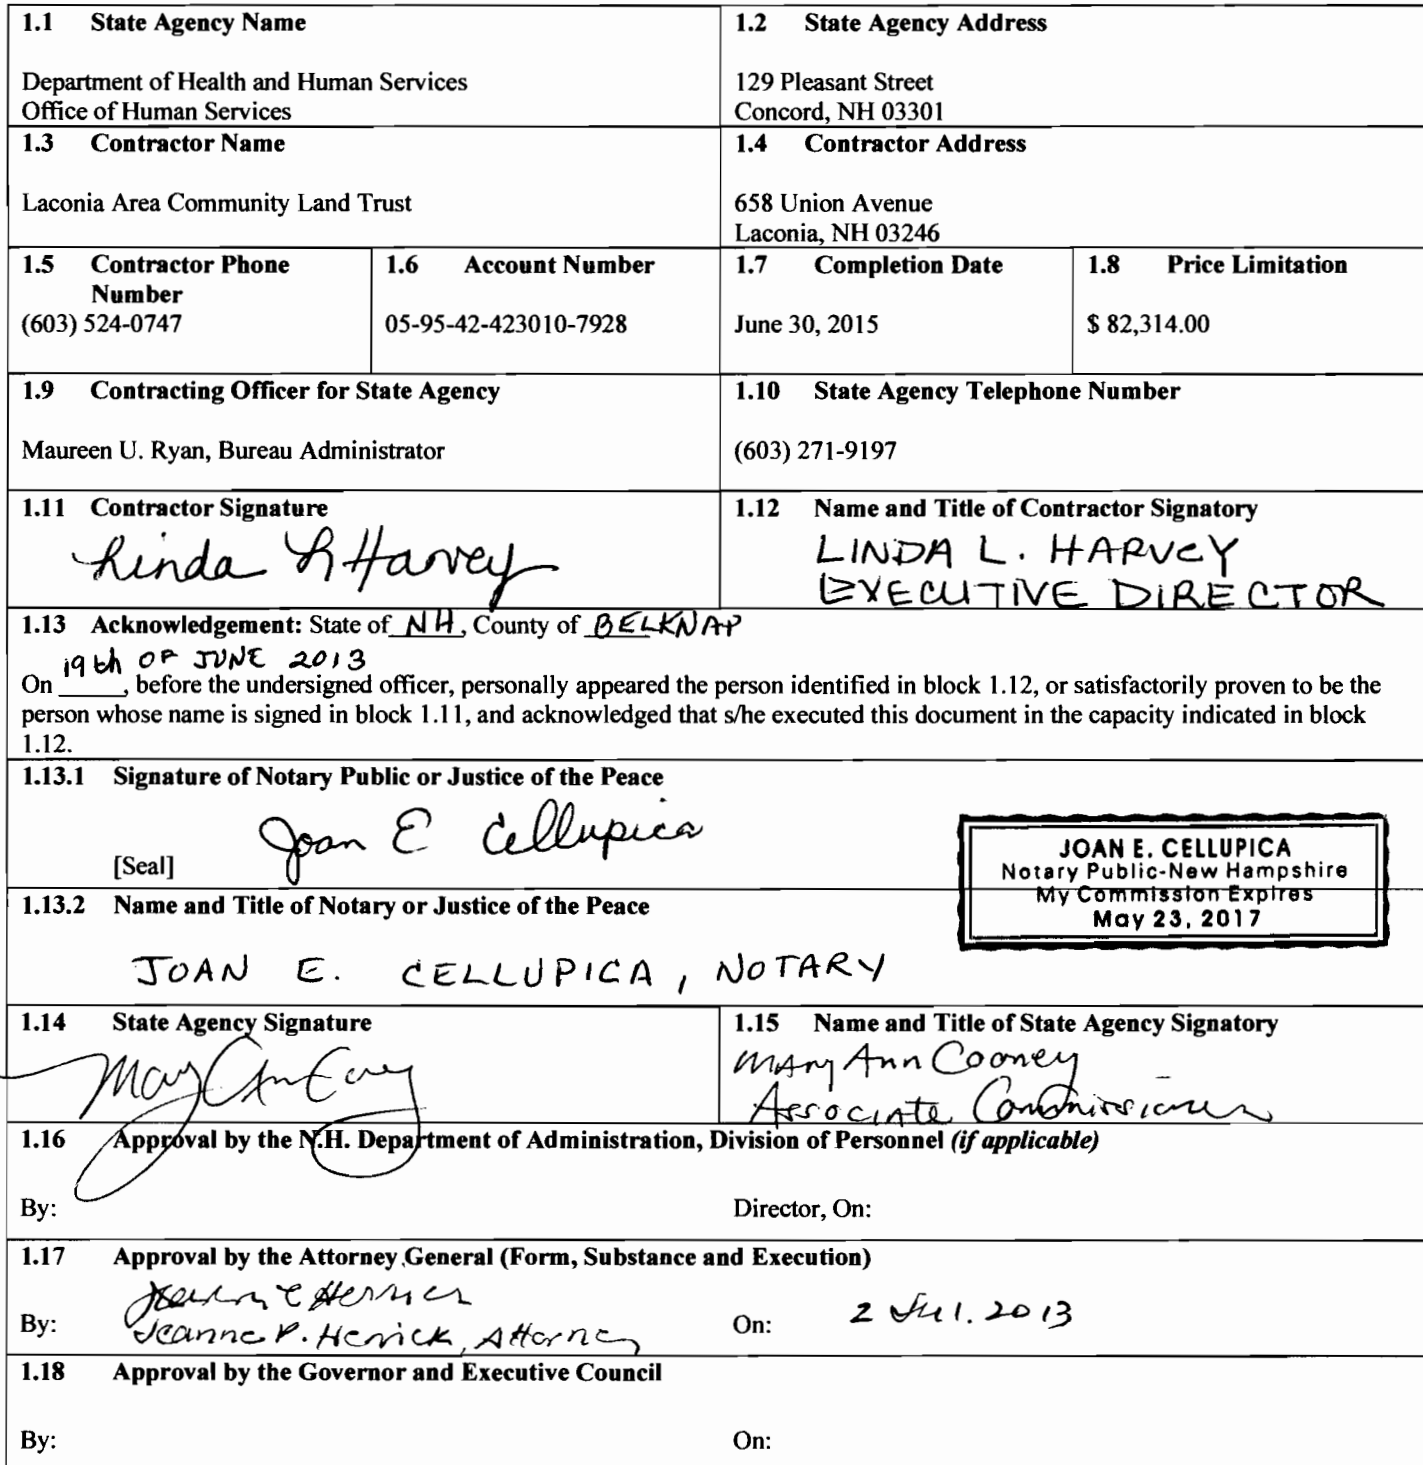 1.1 State Agency Name
Department of Health and Human Services
Office of Human Services
1.2 State Agency Address
129 Pleasant Street
Concord, NH 03301
1.3 Contractor Name
Laconia Area Community Land Trust
1.4 Contractor Address
658 Union Avenue
Laconia, NH 03246
1.5 Contractor Phone
Number
(603) 524-0747
1.6 Account Number
05-95-42-423010-7928
1.7 Completion Date
June 30, 2015
1.8 Price Limitation
$ 82,314.00
1.9 Contracting Officer for State Agency
Maureen U. Ryan, Bureau Administrator
1.10 State Agency Telephone Number
(603) 271-9197
1.11 Contractor Signature
Linda L Harvey
1.12 Name and Title of Contractor Signatory
LINDA L. HARVEY
EXECUTIVE DIRECTOR
1.13 Acknowledgement: State of NH, County of BELKNAP
19th OF JUNE 2013
On _____, before the undersigned officer, personally appeared the person identified in block 1.12, or satisfactorily proven to be the
person whose name is signed in block 1.11, and acknowledged that s/he executed this document in the capacity indicated in block
1.12.
1.13.1 Signature of Notary Public or Justice of the Peace
Joan E Cellupica
[Seal]
JOAN E. CELLUPICA
Notary Public-New Hampshire
My Commission Expires
May 23, 2017
1.13.2 Name and Title of Notary or Justice of the Peace
JOAN E. CELLUPICA, NOTARY
1.14 State Agency Signature
1.15 Name and Title of State Agency Signatory
Mary Ann Cooney
Associate Commissioner
1.16 Approval by the N.H. Department of Administration, Division of Personnel (if applicable)
By:
Director, On:
1.17 Approval by the Attorney General (Form, Substance and Execution)
By: Jeanne P. Herrick, Attorney
On: 2 Jul. 2013
1.18 Approval by the Governor and Executive Council
By:
On: